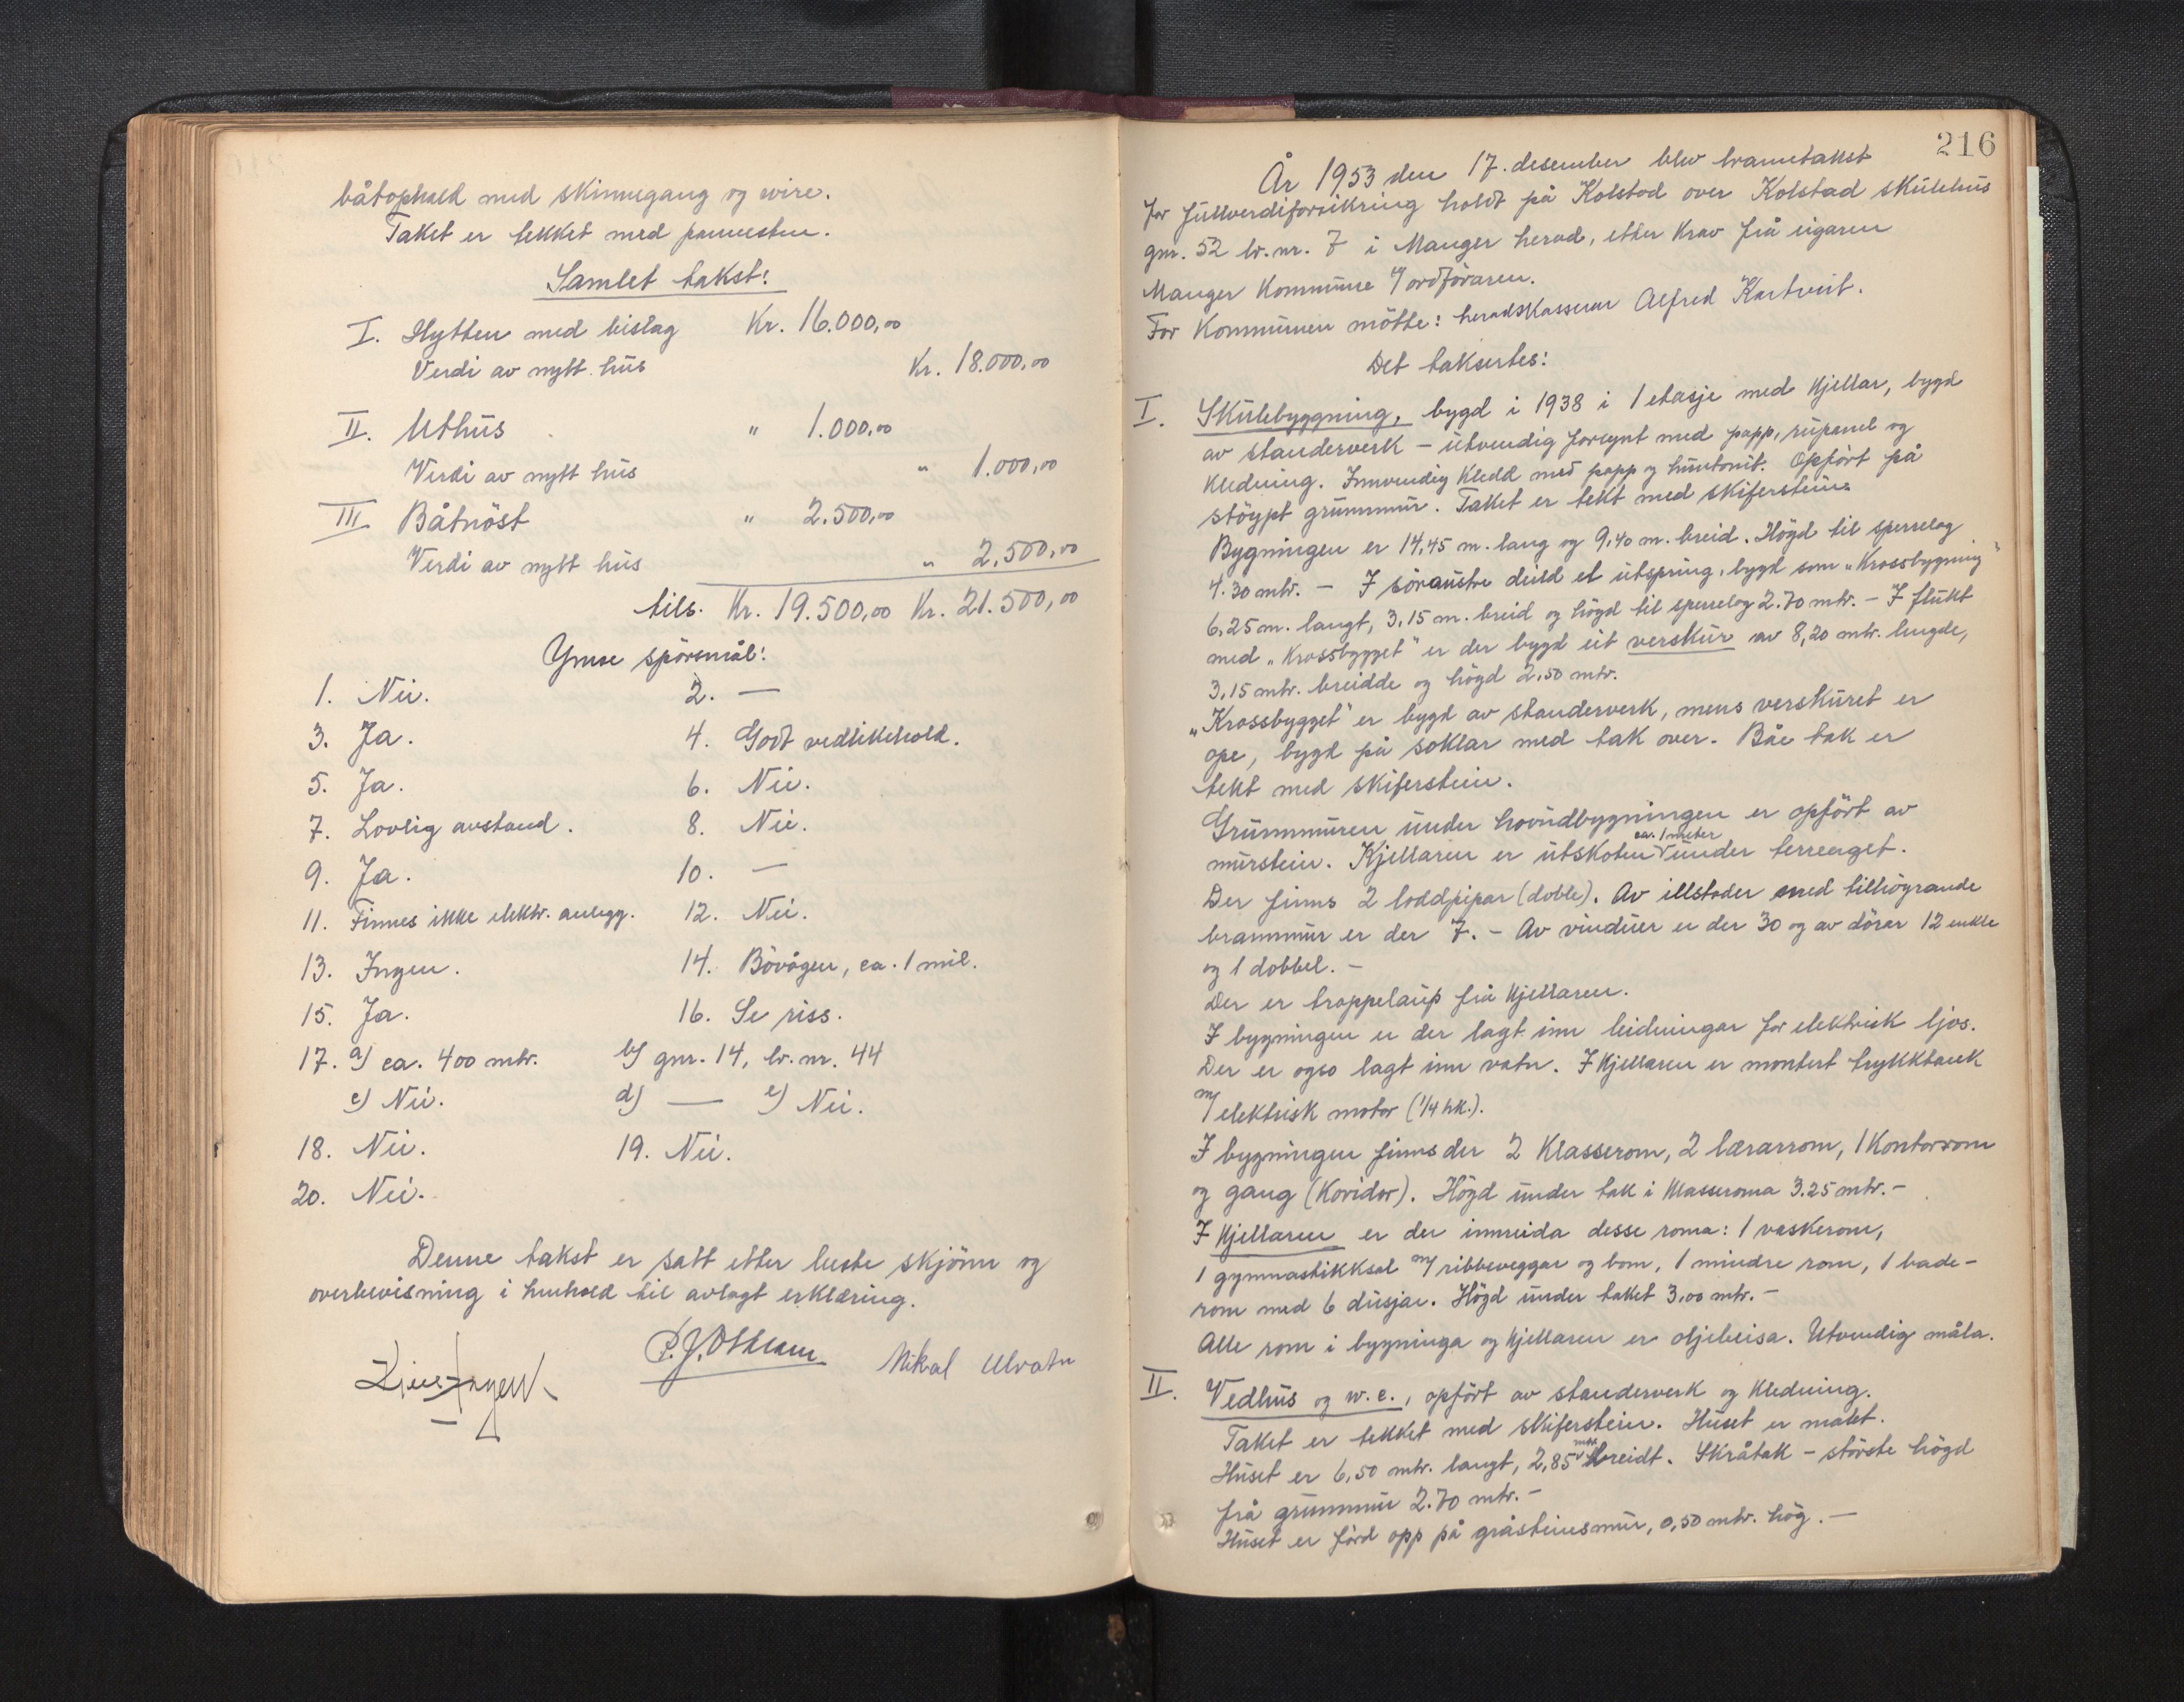 båtophald med skinnegang og wire.
Taket er tekket med pannesten.
Samlet takst:
I. Hytten med bislag Kr. 16.000,00
Verdi av nytt hus Kr. 18.000,00
II. Uthus " 1.000,00
Verdi av nytt hus " 1.000,00
III. Båtnöst " 2.500,00
Verdi av nytt hus " 2.500,00
tils. Kr. 19.500,00 Kr. 21.500,00
Ymse spörsmål:
1. Nei. 2. —
3. Ja. 4. Godt vedlikehold.
5. Ja. 6. Nei.
7. Lovlig avstand. 8. Nei.
9. Ja. 10. —
11. Finnes ikke elektr. anlegg. 12. Nei.
13. Ingen. 14. Bövågen, ca. 1 mil.
15. Ja. 16. Se riss.
17. a) ca. 400 mtr. b) gnr. 14, br. nr. 44
c) Nei. d) — e) Nei.
18. Nei. 19. Nei.
20. Nei.
Denne takst er satt etter beste skjönn og
overbevisning i henhold til avlagt erklæring.
Nikal Ulvatn
216
År 1953 den 17. desember blev branntakst
for fullverdiforsikring holdt på Kolstad over Kolstad skulehus
gnr. 52 br. nr. 7 i Manger herad, etter krav frå eigaren
Manger Kommune v/ ordföraren.
For Kommunen mötte: heradskasserar Alfred Kartveit.
Det taksertes:
I. Skulebyggning, bygd i 1938 i 1 etasje med kjellar, bygd
av standerverk – utvendig forsynt med papp, rupanel og
kledning. Innvendig kledd med papp og huntonit. Opfört på
stöypt grunnmur. Taket er tekt med skiferstein.
Bygningen er 14,45 m. lang og 9,40 m. breid. Högd til sperrelag
4.30 mtr. – I söraustre deild et utspring, bygd som "Krossbygning"
6,25 m. langt, 3,15 m. breid og högd til sperrelag 2.70 mtr. – I flukt
med "Krossbygget" er der bygd eit verskur av 8,20 mtr. lengde,
3,15 mtr. breidde og högd 2,50 mtr.
"Krossbygget" er bygd av standerverk, mens verskuret er
ope, bygd på soklar med tak over. Båe tak er
tekt med skiferstein.
Grunnmuren under hovudbygningen er opfört av
murstein. Kjellaren er utskoten ca. 1 meter under terrenget.
Der finns 2 loddpipar (doble). Av illstader med tilhögrande
brannmur er der 7. – Av vinduer er der 30 og av dörer 12 enkle
og 1 dobbel. –
Der er trappelaup frå kjellaren.
I bygningen er der lagt inn leidningar for elektrisk ljos.
Der er ogso lagt inn vatn. I kjellaren er montert trykktank
m/ elektrisk motor (1/4 hk.).
I bygningen finns der 2 klasserom, 2 lærarrom, 1 Kontorrom
og gang (Koridor). Högd under tak i klasseroma 3.25 mtr. –
I kjellaren er der innreida desse roma: 1 vaskerom,
1 gymnastikksal m/ ribbeveggar og bom, 1 mindre rom, 1 bade-
rom med 6 dusjar. Högd under taket 3,00 mtr. –
Alle rom i bygninga og kjellaren er oljebeisa. Utvendig måla.
II. Vedhus og w.c., opfört av standerverk og kledning.
Taket er tekket med skiferstein. Huset er malet.
Huset er 6,50 mtr. langt, 2,85 mtr breidt. Skråtak – störste högd
frå grunnmur 2.70 mtr. –
Huset er förd opp på gråsteinsmur, 0,50 mtr. hög. –